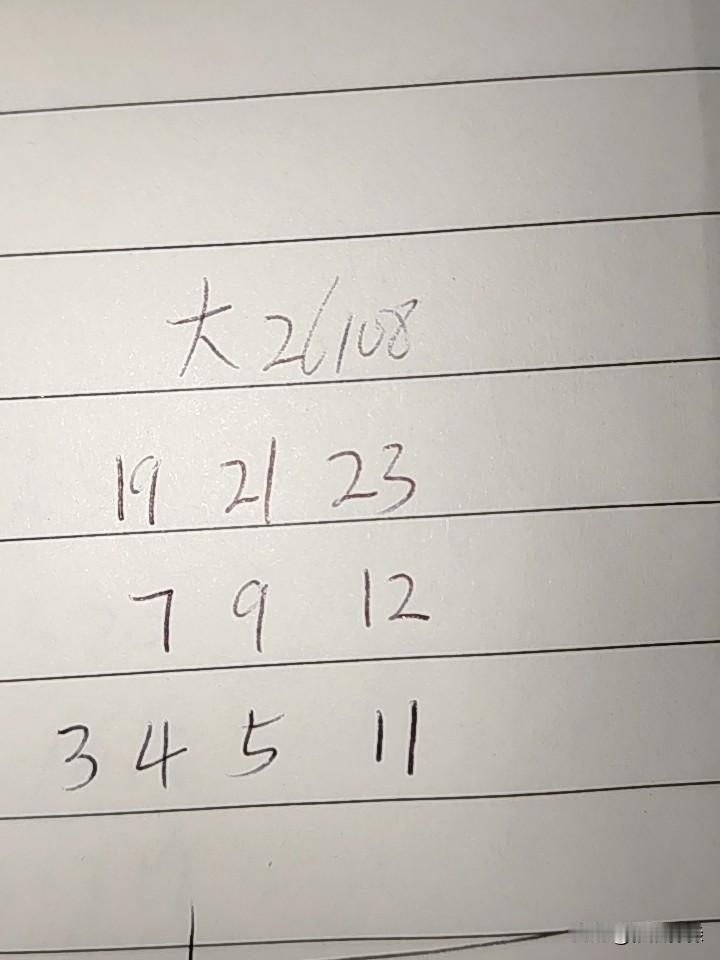 大26108
19 21 23
7 9 12
3 4 5 11